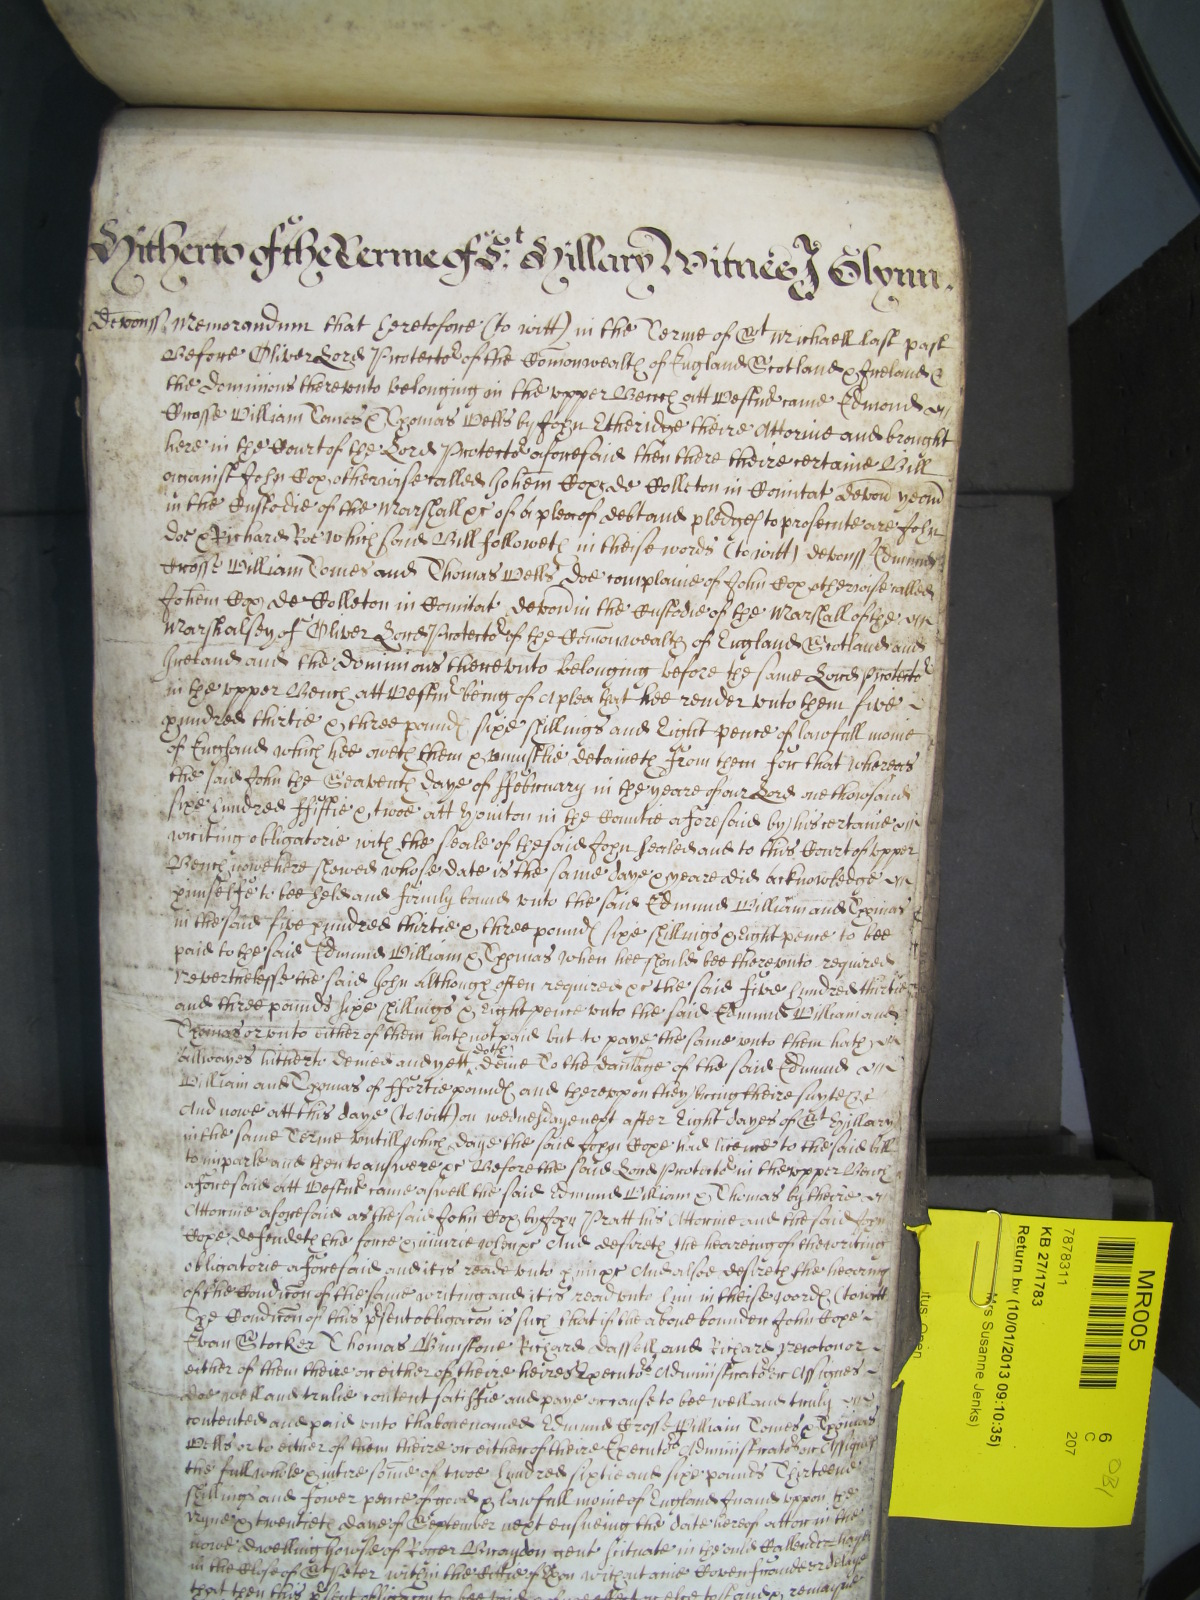 Hitherto of the Terme of St. Hillary Witnes J Glynn.
Devonss Memorandum that heretofore (to witt) in the Terme of St Michaell last past
Before Oliver Lord Protector of the Comonwealth of England Scotland & Ireland &
the dominions thereunto belonging in the upper Bench att Westmr came Edmond
Crosse William Tomes & Thomas Wells by John Etheridge theire Attornie and brought
here in the Court of the Lord Protector aforesaid then there theire certaine Bill
against John Cox otherwise called Johem Cox de Colleton in Comitat devon yeom
in the Custodie of the Marshall &c of a plea of debt and pledges to prosecute are John
Doe & Richard Roe which said Bill followeth in theise words (to witt) devonss Edmund
Crosse William Tomes and Thomas Wells doe complaine of John Cox otherwise called
Johem Cox de Colleton in Comitat devon in the Custodie of the Marshall of the
Marshalsey of Oliver Lord Protector of the Comonwealth of England Scotland and
Ireland and the dominions thereunto belonging before the same Lord Protector
in the upper Bench att Westmr being of a plea that hee render unto them five
hundred thirtie & three pounds sixe shillings and Eight pence of lawfull monie
of England which hee oweth them & uniustlie detaineth from them for that whereas
the said John the Seaventh daye of ffebruary in the yeare of our Lord one thowsand
sixe hundred ffiftie & twoe att Honiton in the Countie aforesaid by his certaine
writing obligatorie with the seale of the said John sealed and to this Court of upper
Bench nowe here shewed whose date is the same daye & yeare did acknowledge
himselfe to bee held and firmly bound unto the said Edmund William and Thomas
in the said five hundred thirtie & three pounds sixe shillings & Eight pence to bee
paid to the said Edmund William & Thomas when hee should bee thereunto required
Neverthelesse the said John although often required &c the said five hundred thirtie
and three pounds sixe shillings & Eight pence unto the said Edmund William and
Thomas or unto either of them hath not paid but to paye the same unto them hath
allwayes hitherto denied and yett doth denie To the damage of the said Edmund
William and Thomas of ffortie pounds and thereupon they bring theire suyte &c
And nowe att this daye (to witt) on wednesday next after Eight dayes of St Hillary
in the same Terme untill which daye the said John Cope had licence to the said bill
to imparle and then to answere &c Before the said Lord Protector in the upper Bench
aforesaid att Westmr came aswell the said Edmund William & Thomas by theire
Attornie aforesaid as the said John Cox by John Pratt his Attornie and the said John
Cope defendeth the force & iniurie when &c And desireth the heareing of the writing
obligatorie aforesaid and it is reade unto him &c And alsoe desireth the hearing
of the Condicon of the same writing and it is read unto him in theise words (to witt
The Condicon of this psent obligacon is such that if the above bounden John Cope
Evan Stocker Thomas Binstone Richard dassell and Richard Newton or
either of them theire or either of theire heires Executors Administrators or Assignes
doe well and trulie content satisfie and paye or cause to bee well and truly
contented and paid unto thabovenamed Edmund Crosse William Tomes & Thomas
Wells or to either of them theire or either of theire Executors Administrators or Assignes
the full whole & intire some of twoe hundred sixtie and sixe pounds Thirteene
shillings and fower pence of good & lawfull monie of England In and uppon the
nyne & twentieth daye of September next ensueing the date hereof att or in the
nowe dwelling howse of Roger Braydon gent scituate in the ould Callender haye
in the Close of St Peter within the Cittie of Exon without anie Coven fraude or delaye
that then this psent obligacon to bee void & of none effect or else to stand & remayne
MR005
7878311
KB 27/1783
Return by (10/01/2013 09:10:35)
Mrs Susanne Jenks)
6
C
207